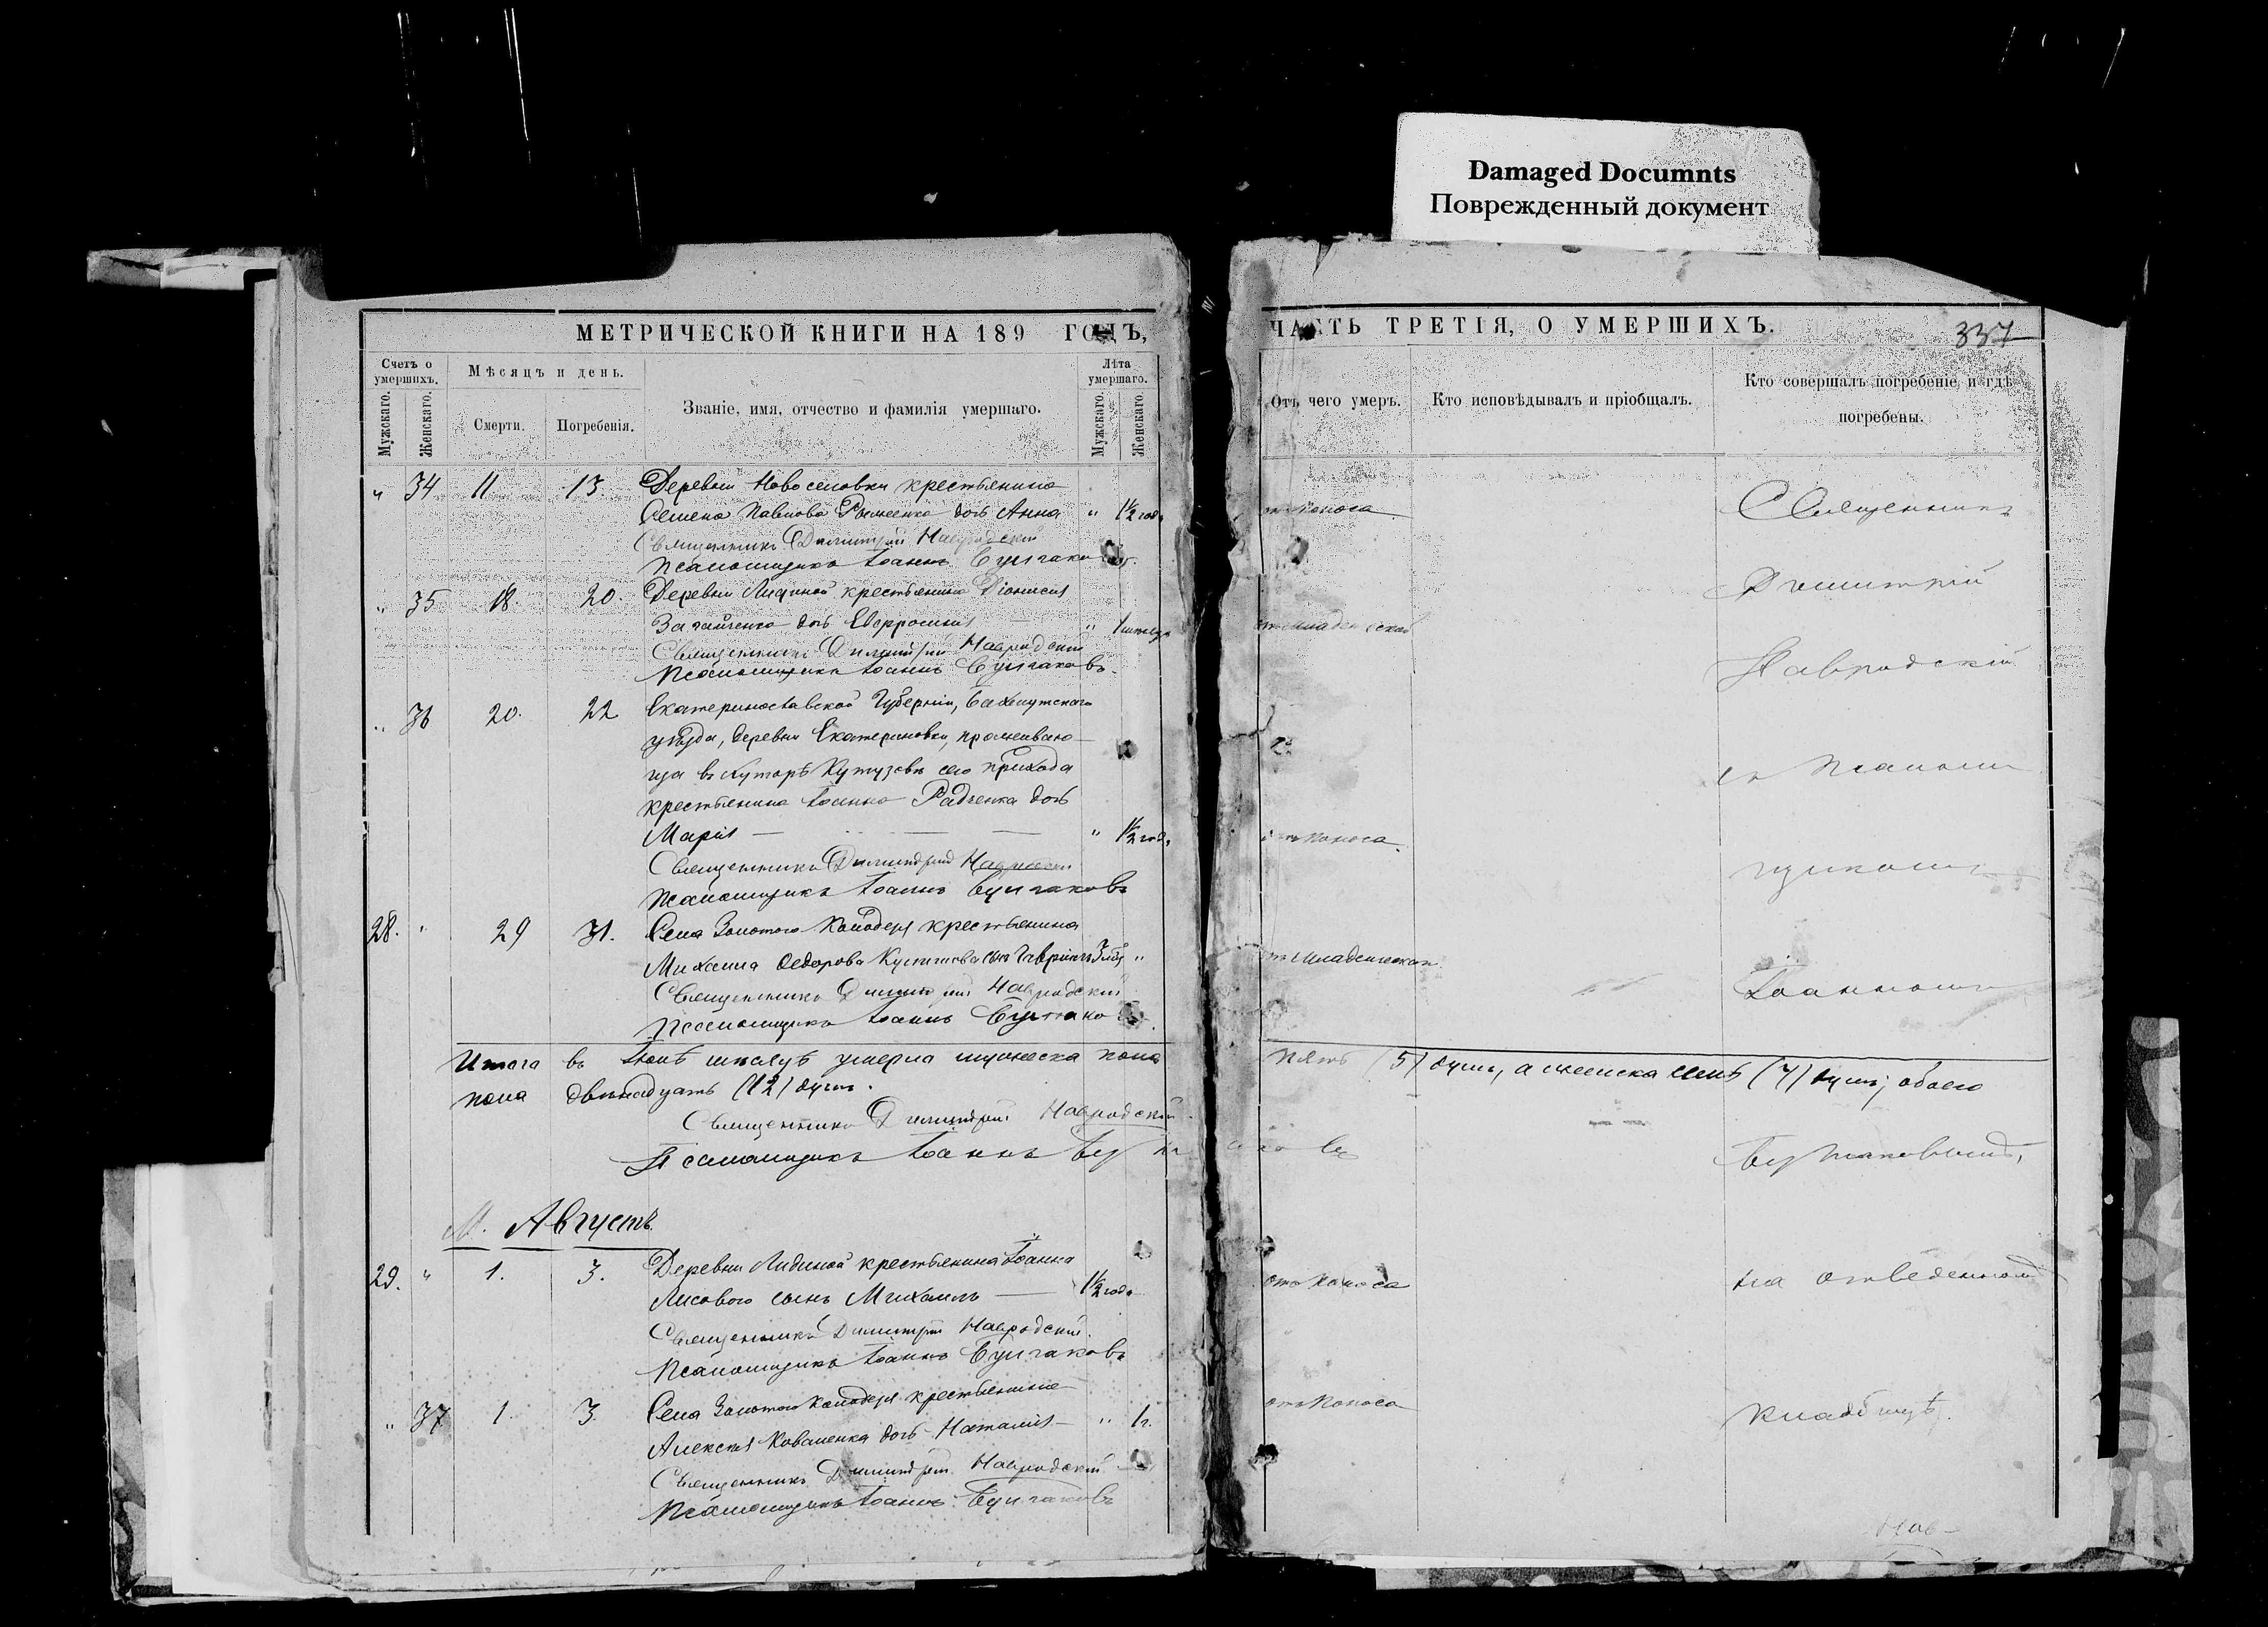 Damaged Documnts
Поврежденный документ
МЕТРИЧЕСКОЙ КНИГИ НА 189 ГОДЪ,
Счетъ о умершихъ.
Мужскаго.
Женскаго.
Мѣсяцъ и день.
Смерти.
Погребенія.
Званіе, имя, отчество и фамилія умершаго.
Лѣта умершаго.
Мужскаго.
Женскаго.
34 11 13. Деревни Новоселовки крестьянина
Семена Павлова дочь Анна " 1½ года
Священникъ Димитрій Навродскій
Псаломщикъ Іоаннъ Булгаковъ.
" 35 18. 20. Деревни крестьянина Діонисія
дочь Евфросинія " 1
Священникъ Димитрій Навродскій
Псаломщикъ Іоаннъ Булгаковъ.
" 36 20. 22 Екатеринославской Губерніи, Бахмутскаго
уѣзда, деревни Екатериновки, проживаю-
ща въ хуторѣ Кутузовѣ сего прихода
крестьянина Іоанна Радченка дочь
Марія — " 1½ года
Священникъ Димитрій Навродскій
Псаломщикъ Іоаннъ Булгаковъ
28. " 29 31. Села Золотого Колодезя крестьянина
Михаила Ѳедорова сынъ Гавріилъ "
Священникъ Димитрій Навродскій
Псаломщикъ Іоаннъ Булгаковъ.
Итого въ Іюлѣ мѣсяцѣ умерло мужеска пола
пола двѣнадцать (12) душъ.
Священникъ Димитрій Навродскій.
Псаломщикъ Іоаннъ
М. Августъ.
29. " 1. 3. Деревни Лидиной крестьянина Іоанна
Лисового сынъ Михаилъ — 1½ года
Священникъ Димитрій Навродскій.
Псаломщикъ Іоаннъ Булгаковъ
" 37 1. 3. Села Золотого Колодезя крестьянина
Алексѣя Коваленка дочь Наталія — " 1 г.
Священникъ Димитрій Навродскій
Псаломщикъ Іоаннъ Булгаковъ
ЧАСТЬ ТРЕТІЯ, О УМЕРШИХЪ.
337
Отъ чего умеръ.
Кто исповѣдывалъ и пріобщалъ.
Кто совершалъ погребеніе и гдѣ
погребены.
отъ поноса
Священникъ
Димитрій
Навродскій
съ Псалом
отъ поноса.
щикомъ
Іоанномъ
пять (5) душъ, а женска семь (7) душъ; обоего
Булгаковымъ,
отъ поноса
на отведенномъ
отъ поноса
кладбищѣ.
Нав-